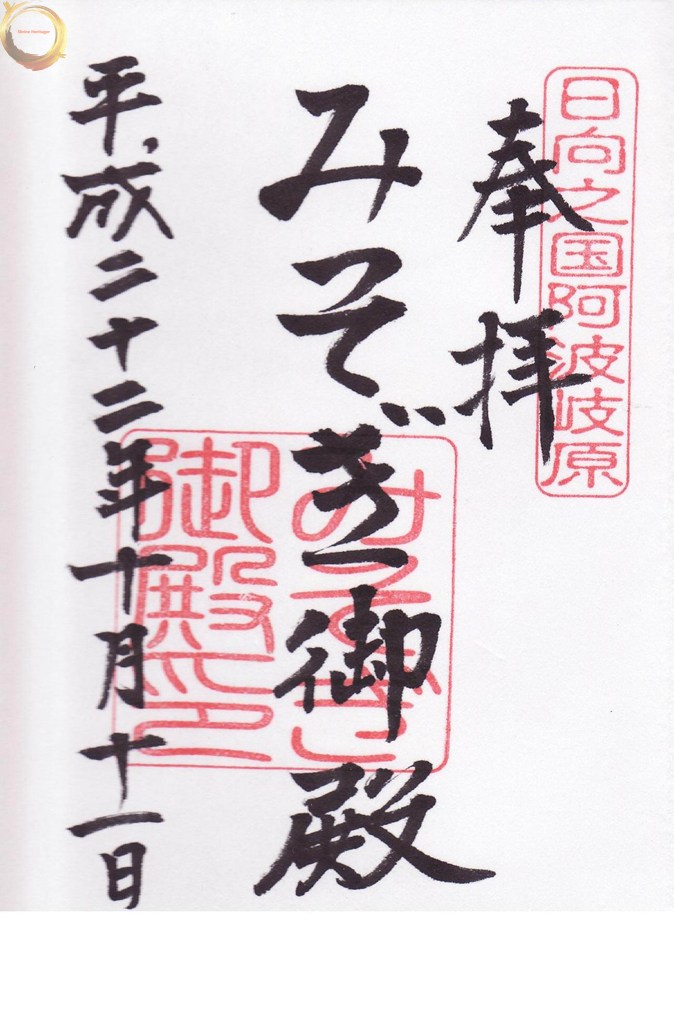 日向之国阿波岐原
奉拝
みそぎ御殿
みそぎ
御殿印
平成二十二年十月十一日